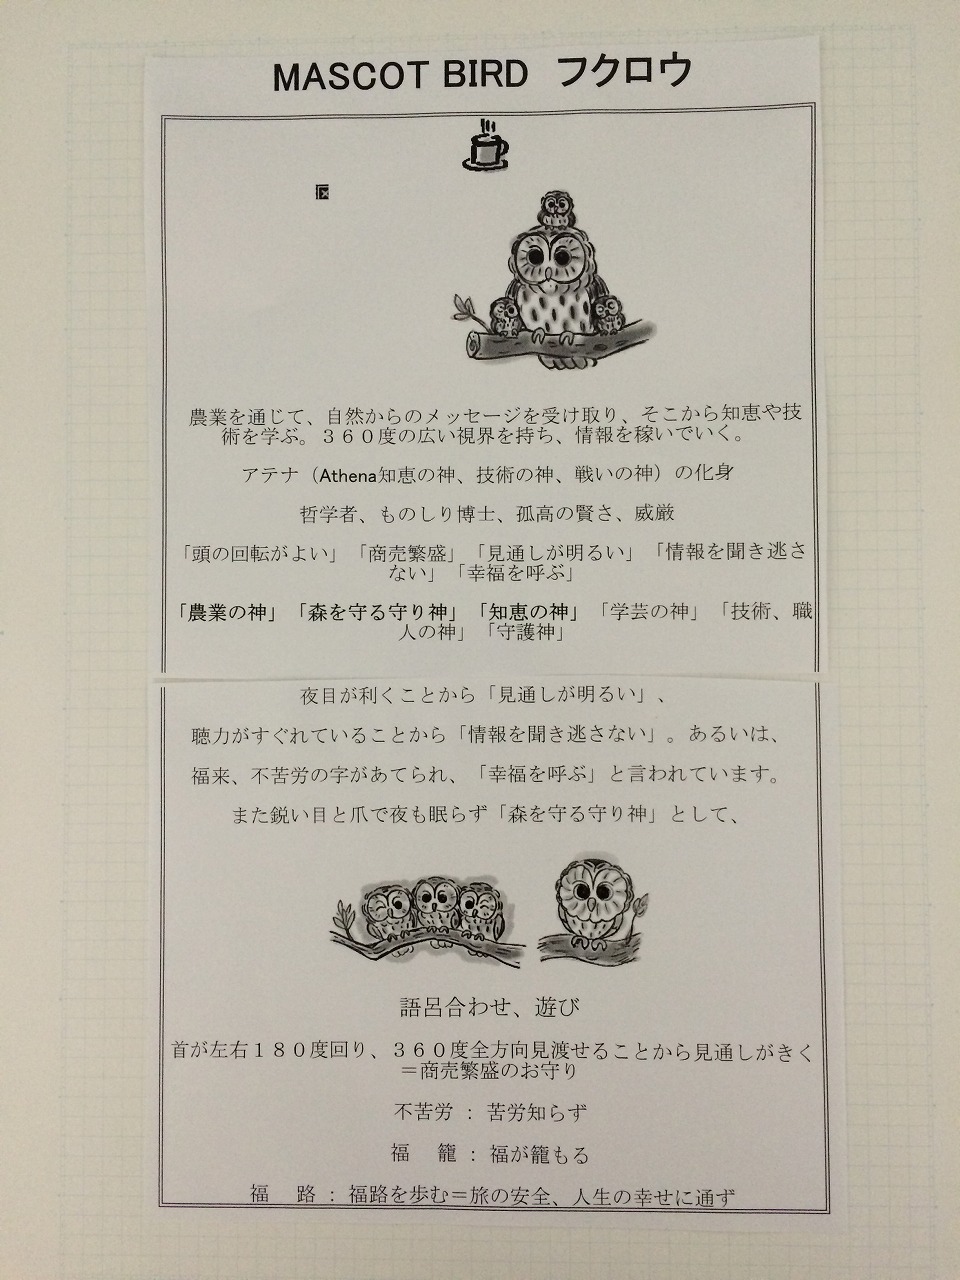 MASCOT BIRD フクロウ
農業を通じて、自然からのメッセージを受け取り、そこから知恵や技
術を学ぶ。３６０度の広い視界を持ち、情報を稼いでいく。
アテナ（Athena知恵の神、技術の神、戦いの神）の化身
哲学者、ものしり博士、孤高の賢さ、威厳
「頭の回転がよい」「商売繁盛」「見通しが明るい」「情報を聞き逃さ
ない」「幸福を呼ぶ」
「農業の神」「森を守る守り神」「知恵の神」「学芸の神」「技術、職
人の神」「守護神」
夜目が利くことから「見通しが明るい」、
聴力がすぐれていることから「情報を聞き逃さない」。あるいは、
福来、不苦労の字があてられ、「幸福を呼ぶ」と言われています。
また鋭い目と爪で夜も眠らず「森を守る守り神」として、
語呂合わせ、遊び
首が左右１８０度回り、３６０度全方向見渡せることから見通しがきく
＝商売繁盛のお守り
不苦労 ： 苦労知らず
福　籠 ： 福が籠もる
福　路 ： 福路を歩む＝旅の安全、人生の幸せに通ず